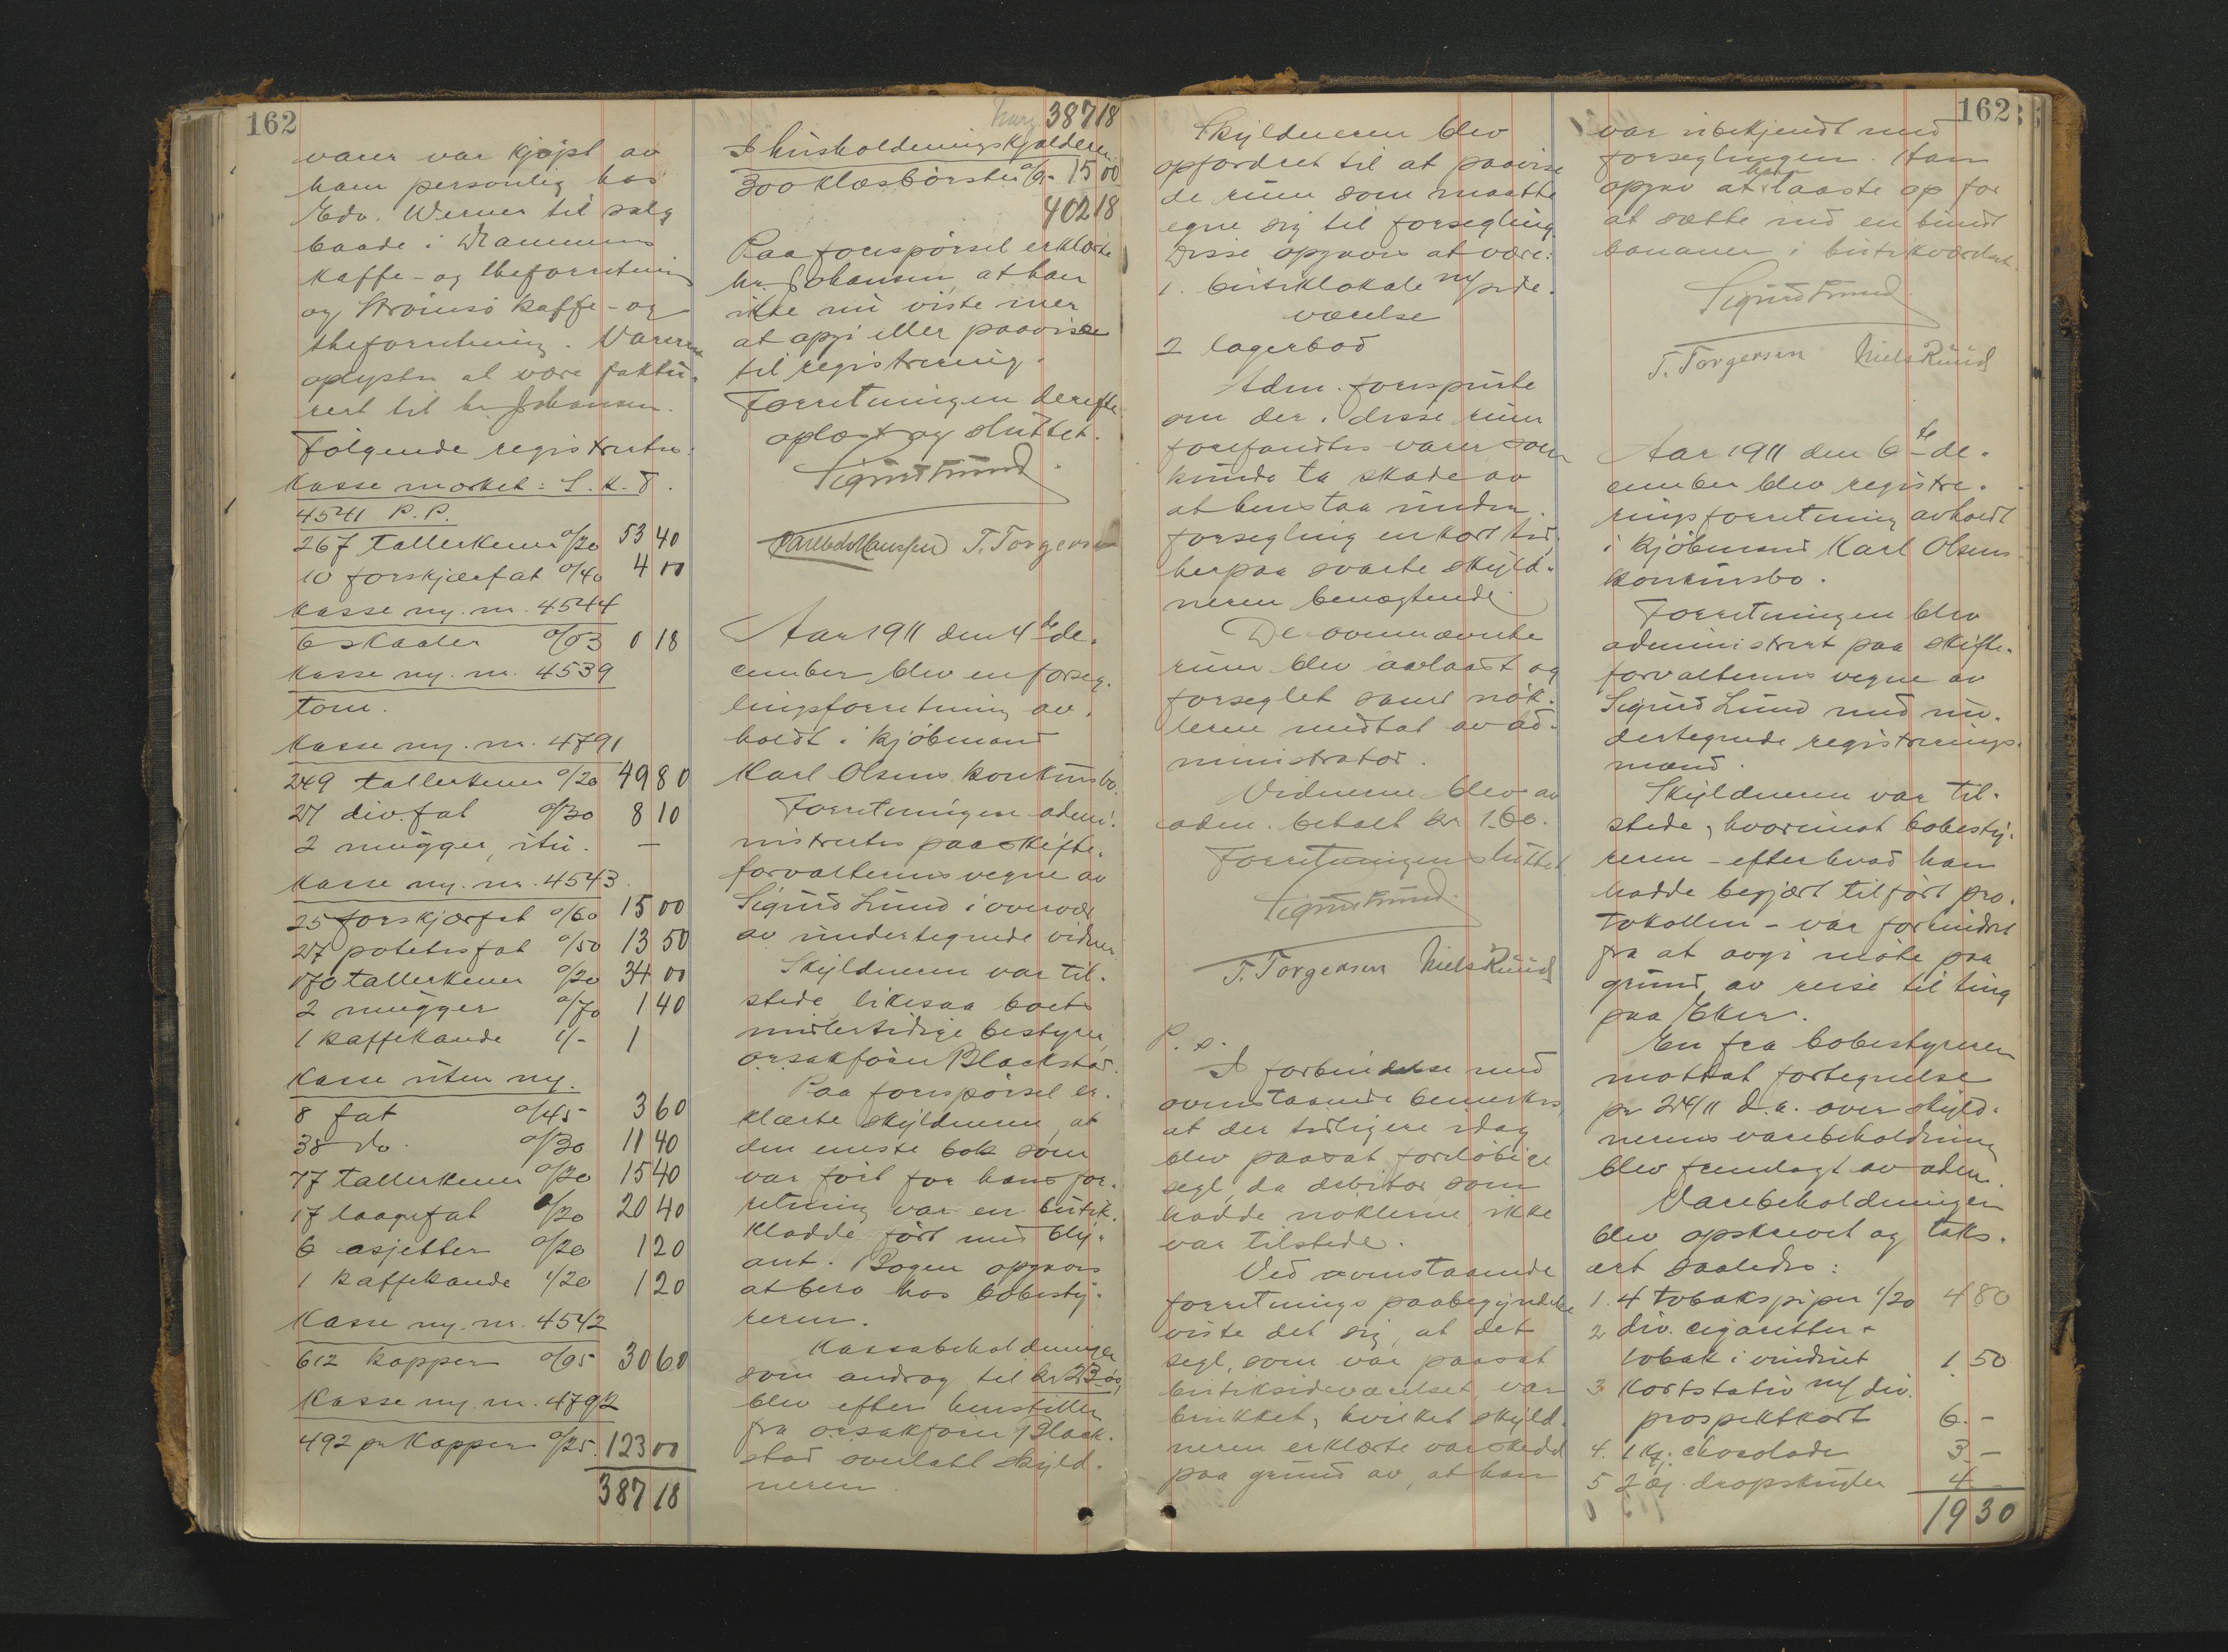 162
varer var kjøpt av
ham personlig hos
Edv. Werner til salg
baade i Drammens
kaffe- og theforretning
og Strømsø kaffe- og
theforretning. Varerne
oplystes at være faktu-
rert til hr. Johansen.
Følgende registrertes:
Kasse merket: S. K. T.
4541 P. P.
267 tallerkener o/20 53 40
10 forskjærfat o/40 4 00
Kasse my. nr. 4544
6 skaaler o/03 0 18
Kasse my. nr. 4539
tom.
Kasse my. nr. 4791
249 tallerkener o/20 49 80
27 div. fat o/30 8 10
2 mugger, itu. —
Kasse my. nr. 4543.
25 forskjærfat o/60 15 00
27 potetesfat o/50 13 50
170 tallerkener o/20 34 00
2 mugger o/70 1 40
1 kaffekande 1/- 1
Kasse uten my.
8 fat o/45 3 60
38 do. o/30 11 40
77 tallerkener o/20 15 40
17 laagefat 1/20 20 40
6 asjetter o/20 1 20
1 kaffekande 1/20 1 20
Kasse my. nr. 4542
612 kopper o/05 30 60
Kasse my. nr. 4792
492 pr kopper o/25. 123 00
387 18
387 18
I husholdningskjælderen
300 klosbørster o/05 15 00
402 18
Paa forespørsel erklærte
hr. Johansen, at han
ikke nu viste mer
at opgi eller paavise
til registrering.
Forretningen derefter
oplæst og sluttet.
Sigurd Lund.
T. Torgersen
Aar 1911 den 4de de-
cember blev en forseg-
lingsforretning av-
holdt i kjøbmand
Karl Olsens konkursbo.
Forretningen admi-
nistrertes paa skifte-
forvalterens vegne av
Sigurd Lund i overvær
av undertegnede vidner.
Skyldneren var til-
stede, likesaa boets
midlertidige bestyrer,
o.r.sakfører Blackstad.
Paa forespørsel er-
klærte skyldneren, at
den eneste bok som
var ført for hans for-
retning var en butik-
kladde ført med bly-
ant. Bogen opgaves
at bero hos bobesty-
reren.
Kassabeholdningen
som androg til kr 23.00,
blev efter henstillen
fra o.r.sakfører Black-
stad overlatt skyld-
neren.
Skyldneren blev
opfordret til at paavise
de rum som maatte
egne sig til forsegling.
Disse opgaves at være:
1. butiklokale m/ side-
værelse
2 lagerbod
Adm. forespurte
om der i disse rum
forefandtes varer som
kunde ta skade av
at henstaa under
forsegling en kort tid,
herpaa svarte skyld-
neren benegtende.
De ovennævnte
rum blev avlaast og
forseglet samt nøk-
lerne medtat av ad-
ministrator.
Vidnerne blev av
adm. betalt kr 1.60.
Forretningen sluttet
Sigurd Lund.
T. Torgersen Niels Ruud
P. S.
I forbindelse med
ovenstaaende bemerkes,
at der tidligere idag
blev paasat foreløbige
segl, da debitor som
hadde nøklerne, ikke
var tilstede.
Ved ovenstaaende
forretnings paabegyndelse
viste det sig, at det
segl, som var paasat
butiksideværelset, var
brukket, hvilket skyld-
neren erklærte var skedd
paa grund av, at han
162
var ubekjendt med
forseglingen. Han
opgav at han laaste op for
at sætte ind en bundt
bananer i butikværelset.
Sigurd Lund
T. Torgersen Niels Ruud
Aar 1911 den 6te de-
cember blev registre-
ringsforretning avholdt
i kjøbmand Karl Olsens
konkursbo.
Forretningen blev
administrert paa skifte-
forvalterens vegne av
Sigurd Lund med un-
dertegnede registrerings-
mænd.
Skyldneren var til-
stede, hvorimot bobesty-
reren - efter hvad han
hadde begjært tilført pro-
tokollen - var forhindret
fra at avgi møte paa
grund av reise til ting
paa Eker.
En fra bobestyreren
mottat fortegnelse
pr 24/11 d. a. over skyld-
nerens varebeholdning
blev fremlagt av adm.
Varebeholdningen
blev opskrevet og taks-
ert saaledes:
1. 4 tobakspiper 1/20 4 80
2 div. cigaretter +
tobak i vinduet 1. 50
3 Kortstativ m/ div.
prospektkort 6. -
4. 1 kg. chocolade 3 -
5 2 æ. dropskugler 4 -
19 30